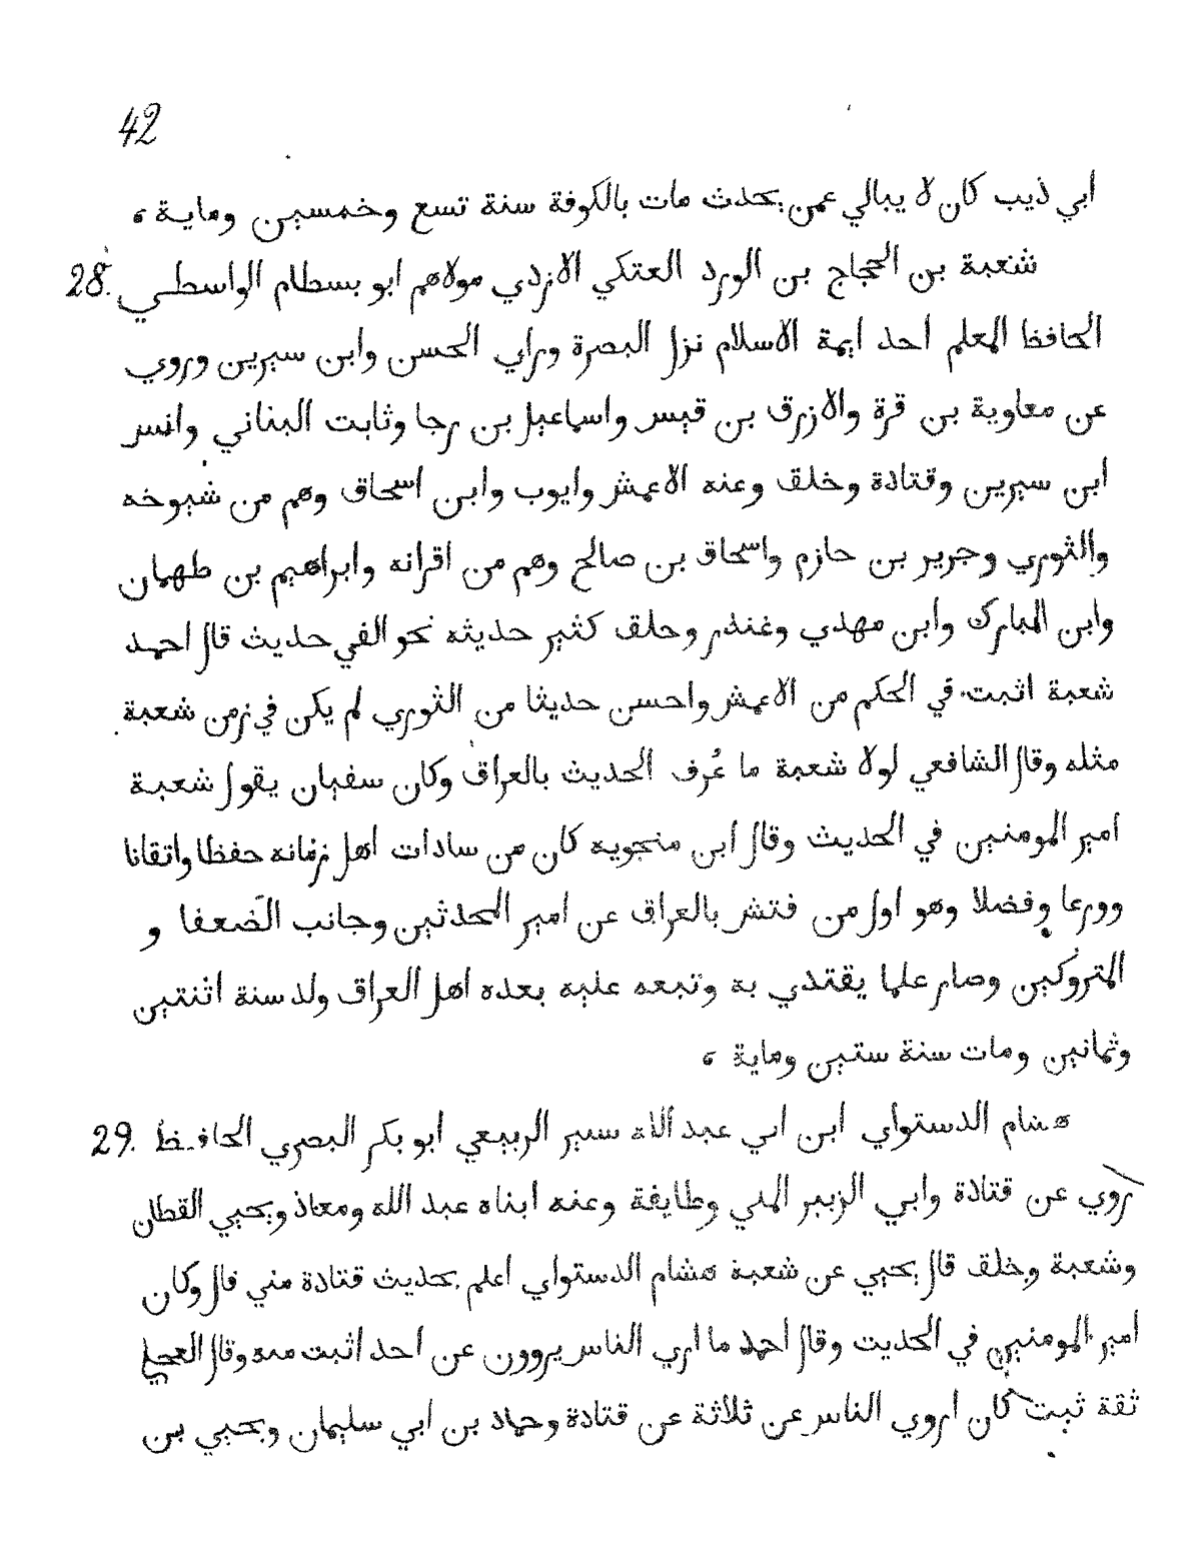 42
ابي ذيب كان لا يبالي عمن يحدث مات بالكوفة سنة تسع وخمسين وماية ه
28. شعبة بن الحجاج بن الورد العتكي الازدي مولاهم ابو بسطام الواسطي
الحافظ المعلم احد ايمة الاسلام نزل البصرة وراي الحسن وابن سيرين وروي
عن معاوية بن قرة والازرق بن قيس واسماعيل بن رجا وثابت البناني وانس
ابن سيرين وقتادة وخلق وعنه الاعمش وايوب وابن اسحاق وهم من شيوخه
والثوري وجرير بن حازم واسحاق بن صالح وهم من اقرانه وابراهيم بن طهمان
وابن المبارك وابن مهدي وغندر وحلق كثير حديثه نحو الفي حديث قال احمد
شعبة اثبت في الحكم من الاعمش واحسن حديثا من الثوري لم يكن في زمن شعبة
مثله وقال الشافعي لولا شعبة ما عُرف الحديث بالعراق وكان سفيان يقول شعبة
امير المومنين في الحديث وقال ابن منجويه كان من سادات اهل زمانه حفظا واتقانا
وورعا وفضلا وهو اول من فتش بالعراق عن امير المحدثين وجانب الضَعفا و
المتروكين وصار علما يقتدي به وتبعه عليه بعده اهل العراق ولد سنة اثنتين
وثمانين ومات سنة ستين وماية ه
29. هشام الدستواي ابن ابي عبد الله سبر الربيعي ابو بكر البصري الحافظ
روي عن قتادة وابي الزبير المني وطايفة وعنه ابناه عبد الله ومعاذ ويحيي القطان
وشعبة وخلق قال يحيي عن شعبة هشام الدستواي اعلم بحديث قتادة مني قال وكان
امير المومنين في الحديت وقال احمد ما اري الناس يروون عن احد اثبت منه وقال العجلي
ثقة ثبت كان اروي الناس عن ثلاثة عن قتادة وحماد بن ابي سليمان ويحيي بن